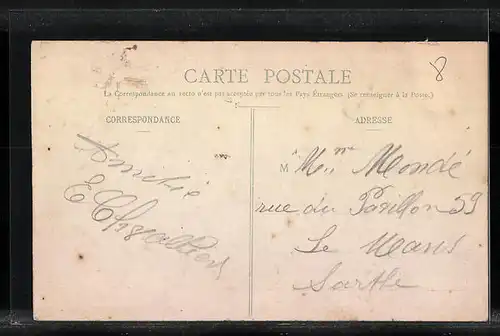 8
CARTE POSTALE
La Correspondance au recto n'est pas acceptée par tous les Pays Étrangers (Se renseigner à la Poste.)
CORRESPONDANCE
ADRESSE
Amitié
E
M
Mondé
rue du Pavillon 59
Le Mans
Sarthe